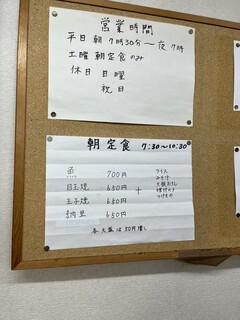 営業時間
平日 朝 7時30分～夜 7時
土曜 朝定食のみ
休日 日曜
祝日
朝定食 7:30～10:30
魚 700円
目玉焼 650円
玉子焼 650円
納豆 650円
+
ライス
みそ汁
大根おろし
味付のり
つけもの
各大盛は50円増し